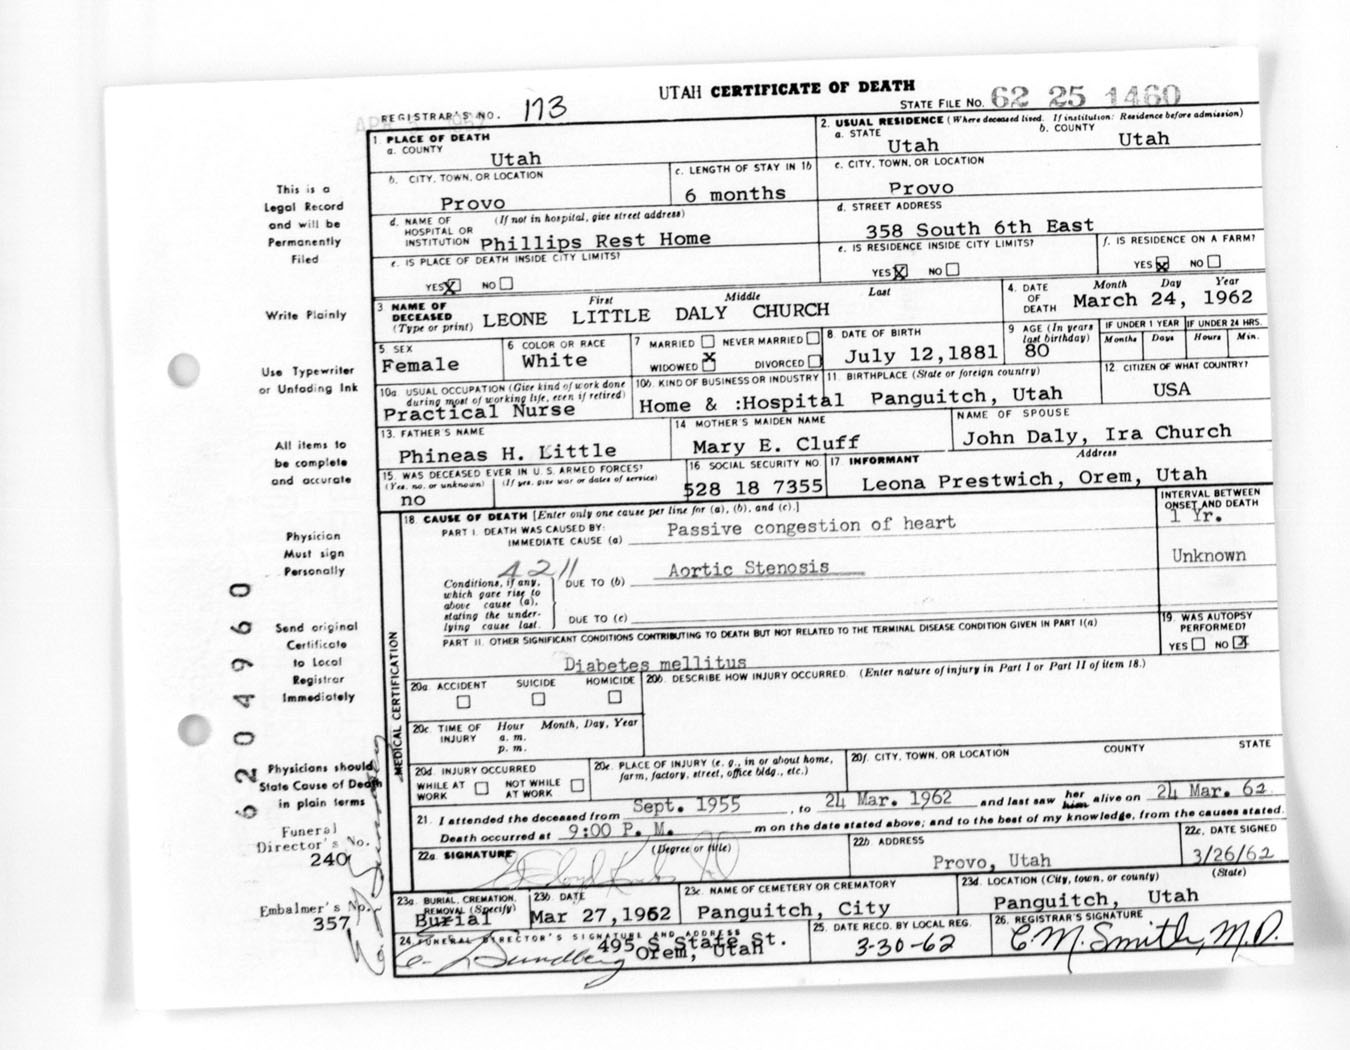 UTAH CERTIFICATE OF DEATH
REGISTRAR'S NO. 173
STATE FILE NO. 62 25 1460
1. PLACE OF DEATH
a. COUNTY
Utah
2. USUAL RESIDENCE (Where deceased lived. If institution: Residence before admission)
a. STATE
Utah
b. COUNTY
Utah
b. CITY, TOWN, OR LOCATION
Provo
c. LENGTH OF STAY IN 1b
6 months
c. CITY, TOWN, OR LOCATION
Provo
d. NAME OF HOSPITAL OR INSTITUTION (If not in hospital, give street address)
Phillips Rest Home
d. STREET ADDRESS
358 South 6th East
e. IS PLACE OF DEATH INSIDE CITY LIMITS?
YES X NO
e. IS RESIDENCE INSIDE CITY LIMITS?
YES X NO
f. IS RESIDENCE ON A FARM?
YES X NO
3 NAME OF DECEASED (Type or print)
First Middle Last
LEONE LITTLE DALY CHURCH
4. DATE OF DEATH
Month Day Year
March 24, 1962
5. SEX
Female
6 COLOR OR RACE
White
7 MARRIED NEVER MARRIED
WIDOWED X DIVORCED
8. DATE OF BIRTH
July 12,1881
9 AGE (In years last birthday)
80
IF UNDER 1 YEAR
Months Days
IF UNDER 24 HRS.
Hours Min.
10a. USUAL OCCUPATION (Give kind of work done during most of working life, even if retired)
Practical Nurse
10b. KIND OF BUSINESS OR INDUSTRY
Home & :Hospital
11. BIRTHPLACE (State or foreign country)
Panguitch, Utah
12 CITIZEN OF WHAT COUNTRY?
USA
13. FATHER'S NAME
Phineas H. Little
14 MOTHER'S MAIDEN NAME
Mary E. Cluff
NAME OF SPOUSE
John Daly, Ira Church
15. WAS DECEASED EVER IN U. S. ARMED FORCES?
(Yes, no, or unknown) (If yes, give war or dates of service)
no
16 SOCIAL SECURITY NO.
528 18 7355
17 INFORMANT Address
Leona Prestwich, Orem, Utah
18. CAUSE OF DEATH [Enter only one cause per line for (a), (b), and (c).]
INTERVAL BETWEEN ONSET AND DEATH
PART I. DEATH WAS CAUSED BY:
IMMEDIATE CAUSE (a) Passive congestion of heart
1 Yr.
4211
Conditions, if any, which gave rise to above cause (a), stating the underlying cause last.
DUE TO (b) Aortic Stenosis
Unknown
DUE TO (c)
PART II. OTHER SIGNIFICANT CONDITIONS CONTRIBUTING TO DEATH BUT NOT RELATED TO THE TERMINAL DISEASE CONDITION GIVEN IN PART I(a)
Diabetes mellitus
19. WAS AUTOPSY PERFORMED?
YES NO X
MEDICAL CERTIFICATION
20a. ACCIDENT SUICIDE HOMICIDE
20b. DESCRIBE HOW INJURY OCCURRED. (Enter nature of injury in Part I or Part II of item 18.)
20c. TIME OF INJURY
Hour Month, Day, Year
a. m.
p. m.
20d. INJURY OCCURRED
WHILE AT WORK NOT WHILE AT WORK
20e. PLACE OF INJURY (e. g., in or about home, farm, factory, street, office bldg., etc.)
20f. CITY, TOWN, OR LOCATION COUNTY STATE
21. I attended the deceased from Sept. 1955, to 24 Mar. 1962 and last saw her him alive on 24 Mar. 62.
Death occurred at 9:00 P. M. m on the date stated above; and to the best of my knowledge, from the causes stated.
22a. SIGNATURE (Degree or title)
22b. ADDRESS
Provo, Utah
22c. DATE SIGNED
3/26/62
23a. BURIAL, CREMATION, REMOVAL (Specify)
Burial
23b. DATE
Mar 27,1962
23c. NAME OF CEMETERY OR CREMATORY
Panguitch, City
23d. LOCATION (City, town, or county) (State)
Panguitch, Utah
24. FUNERAL DIRECTOR'S SIGNATURE AND ADDRESS
495 S State St.
Orem, Utah
25. DATE RECD. BY LOCAL REG.
3-30-62
26. REGISTRAR'S SIGNATURE
C.M. Smith, M.D.
This is a
Legal Record
and will be
Permanently
Filed
Write Plainly
Use Typewriter
or Unfading Ink
All items to
be complete
and accurate
Physician
Must sign
Personally
Send original
Certificate
to Local
Registrar
Immediately
Physicians should
State Cause of Death
in plain terms
Funeral
Director's No.
240
Embalmer's No.
357
6204960